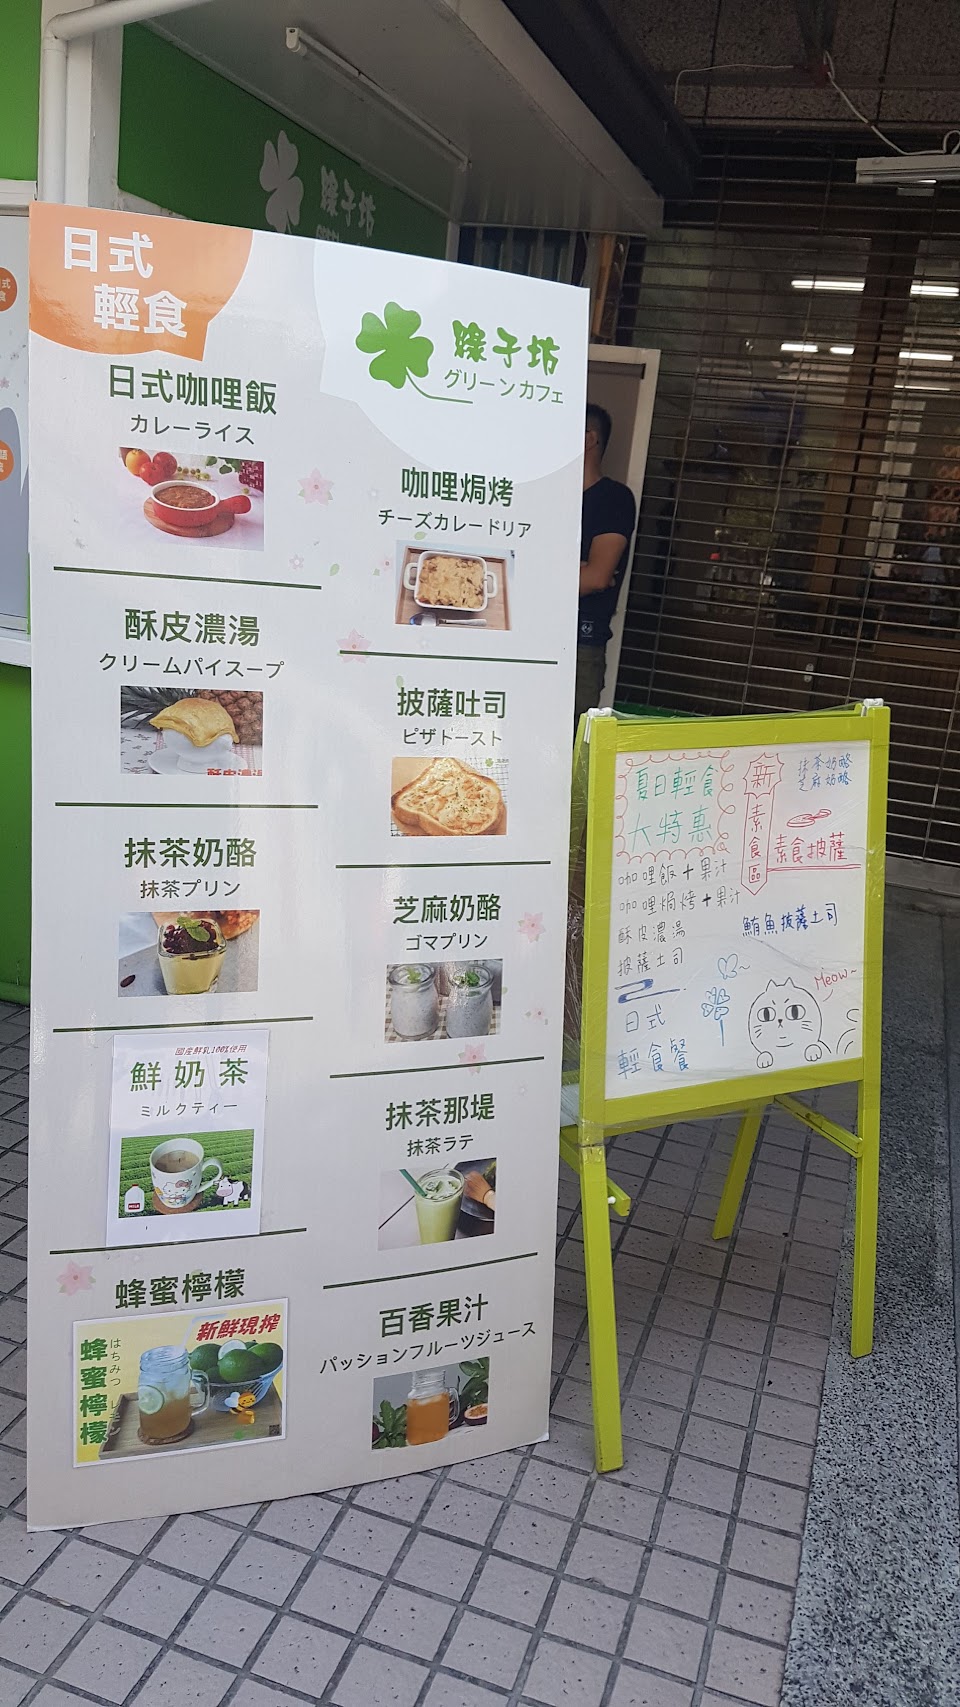 綠子坊
日式
輕食
綠子坊
グリーンカフェ
日式咖哩飯
カレーライス
咖哩焗烤
チーズカレードリア
酥皮濃湯
クリームパイスープ
酥皮濃湯
披薩吐司
ピザトースト
抹茶奶酪
抹茶プリン
芝麻奶酪
ゴマプリン
國産鮮乳100%使用
鮮奶茶
ミルクティー
MILK
抹茶那堤
抹茶ラテ
蜂蜜檸檬
新鮮現搾
蜂蜜檸檬
はちみつ
百香果汁
パッションフルーツジュース
夏日輕食
大特惠
咖哩飯+果汁
咖哩焗烤+果汁
酥皮濃湯
披薩土司
日式
輕食餐
新
素食區
抹茶奶酪
芝麻奶酪
素食披薩
鮪魚披薩土司
Meow~